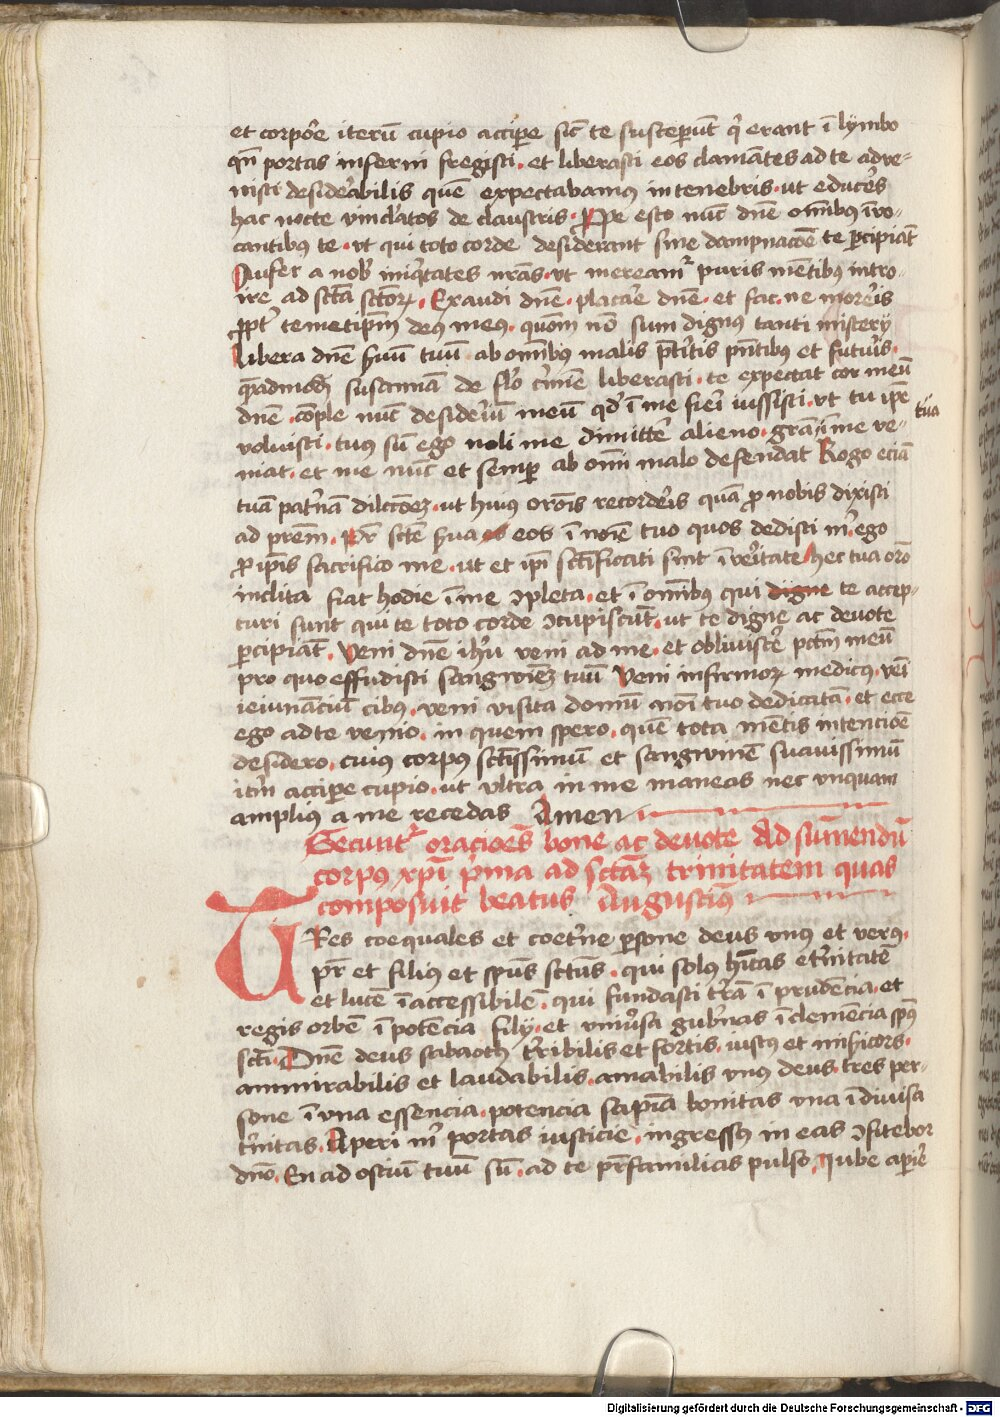 et corpore iterū cupio accipe sic te susceperūt q̄ erant ī lymbo
qn̄ portas inferni fregisti. et liberasti eos clamātes ad te adve-
nisti desiderabilis quē expectabamus in tenebris. ut educeres
hac nocte vinclatos de claustris. Ppe esto nūc dn̄e om̄ibus īvo-
cantibus te. vt qui toto corde desiderant sine dampnacōe te p̄cipiāt
Aufer a nob̄ iniq̄tates nr̄as. vt mereamur puris mētibus intro-
ire ad sctā sctōrꝝ. Exaudi dn̄e. placare dn̄e. et fac. ne moreris
ꝓpt̄ temetip̄m deus meus. quom̄ nō sum dignus tanti mistery
Libera dn̄e s̄uū tuū ab om̄ibus malis p̄teritis pn̄tibus et futuris.
quēadmodū susannam de flō crimīe liberasti. te expectat cor meū
dn̄e. cōple nūc desideriū meū qd̓ ī me fieri iussisti. vt tu ip̄e
voluisti. tuus sū ego noli me dimittere alieno. grā ī me ve-
tua
niat. et me nūc et semp̄ ab om̄i malo defendat Rogo eciā
tuā pat̓nā dilcōeꝫ. ut huius orōis recorderis quā ꝓ nobis dixisti
ad prēm. Pr̄ sctē s̄ua eos ī noīe tuo quos dedisti m̓. ego
ꝓ ip̄is sacrifico me. ut et ip̄i sctīficati sint ī veritate hec tua orō
inclita fiat hodie ī me ꝯpleta. et ī om̄ibus qui digne te accep-
turi sunt qui te toto corde ꝯcupiscūt. ut te digne ac devote
p̄cipiāt. Veni dn̄e ihū veni ad me. et obliviscere pctm̄ meū
pro quo effudisti sangwinēꝫ tuū Veni infirmorꝝ medicus. veni
ieiunāciū cibus. veni visita domū noī tuo dedicatā. et ecce
ego ad te venio. in quem spero. quē tota mētis intencioē
desidero. cuius corpus sctīssimū et sangwinē suavissimū
itm̄ accipe cupio. ut vltra in me maneas nec vnquam
amplius a me recedas Amen
Secunt̄ oracioēs bone ac devote Ad sumendū
corpus xp̄i p̄ma ad sctāꝫ trinitatem quas
composuit beatus Augustinus
TRes coequales et coet̓ne p̄sone deus vnus et verus.
pr̄ et filius et sp̄us sctūs. qui solus hītas et̓nitatē
et lucē īaccessibilē. qui fundasti t̓rā ī prudēcia. et
regis orbē ī potēcia filij. et vniusa gub̓nas ī clemēcia sp̄us
sctī. Dn̄e deus sabaoth t̓ribilis et fortis. iustus et miſicors.
ammirabilis et laudabilis. amabilis vnus deus. tres per-
sone ī vna essencia. potencia sapīa bonitas vna īdivisa
t̓nitas. Aperi m̓ portas iusticie. ingressus in eas ꝯfitebor
dn̄o. En ad ostiū tuū sū. ad te pr̄familias pulso. iube apire
Digitalisierung gefördert durch die Deutsche Forschungsgemeinschaft - DFG